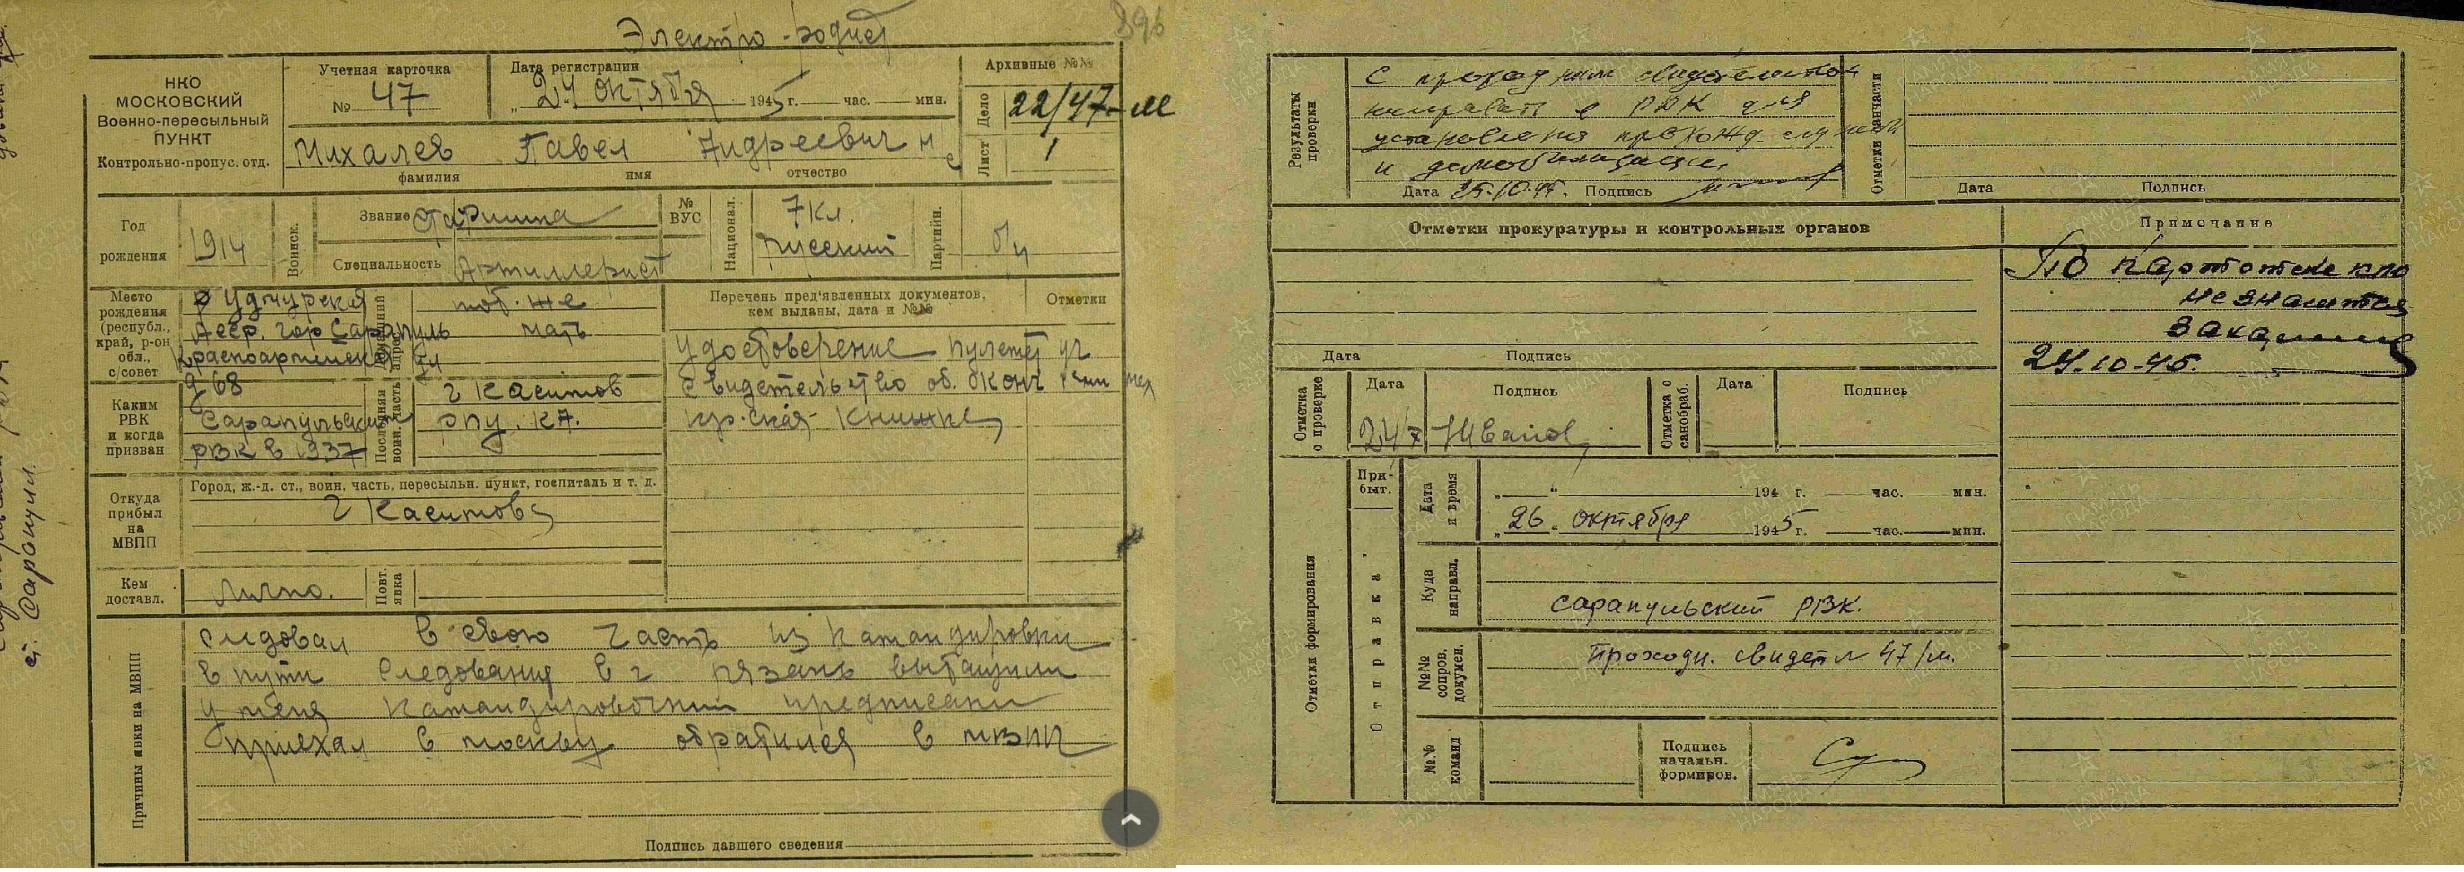 Электро-
896
НКО
МОСКОВСКИЙ
Военно-пересыльный
ПУНКТ
Контрольно-пропус. отд.
Учетная карточка
№ 47
Дата регистрации
„ 24 октября 1945 г. час. мин.
Архивные №№
Дело 22/47-м
Лист 1
Михалев Павел Андреевич
фамилия имя отчество
Год
рождения
1914
Воинск.
Звание старшина
Специальность Артиллерист
№
ВУС
Национал.
7 кл.
русский
Партийн.
б/п
Место
рождения
(республ.,
край, р-он
обл.,
с/совет
Удмурская
Асср. гор Сарапуль
Красноармейска
д 68
Домашний
адрес
тоб-же
мать
Каким
РВК
и когда
призван
Сарапульским
РВК в 1937
Последняя
воин. часть
г Касимов
рпу. КА.
Перечень пред'явленных документов,
кем выданы, дата и №№
Отметки
Удостоверение
Свидетельство об. оконч
кр-ская- Книжка
Откуда
прибыл
на
МВПП
Город, ж.-д. ст., воин, часть, пересыльн. пункт, госпиталь и т. д.
г Касимов
Кем
доставл.
Лично.
Повт.
явка
Причины явки на МВПП
следовал в свою часть из командировки
в пути следования в г рязань вытащили
у меня командировочний предписани
приехал в москву обратился в мвпп
Подпись давшего сведения
ст. Сарапул.
Результаты
проверки
С проходным свидетельством
направить в РВК для
установления прохожд. службы
и демобилизации.
Дата 25.10.45. Подпись
Отметки санчасти
Дата Подпись
Отметки прокуратуры и контрольных органов
Примечание
По картотеке кпо
не значится
24.10-45.
Дата Подпись
Отметка
о проверке
Дата
Подпись
24/X
Отметка о
санобраб.
Дата
Подпись
Отметки формирования
При-
быт.
Отправка
Дата
и время
„ “ 194 г. час. мин.
„ 26. октября 1945 г. час. мин.
Куда
направл.
Сарапульский РВК.
№№
сопров.
докумен.
Проходн. свидет № 47/м.
№№
команд
Подпись
начальн.
формиров.